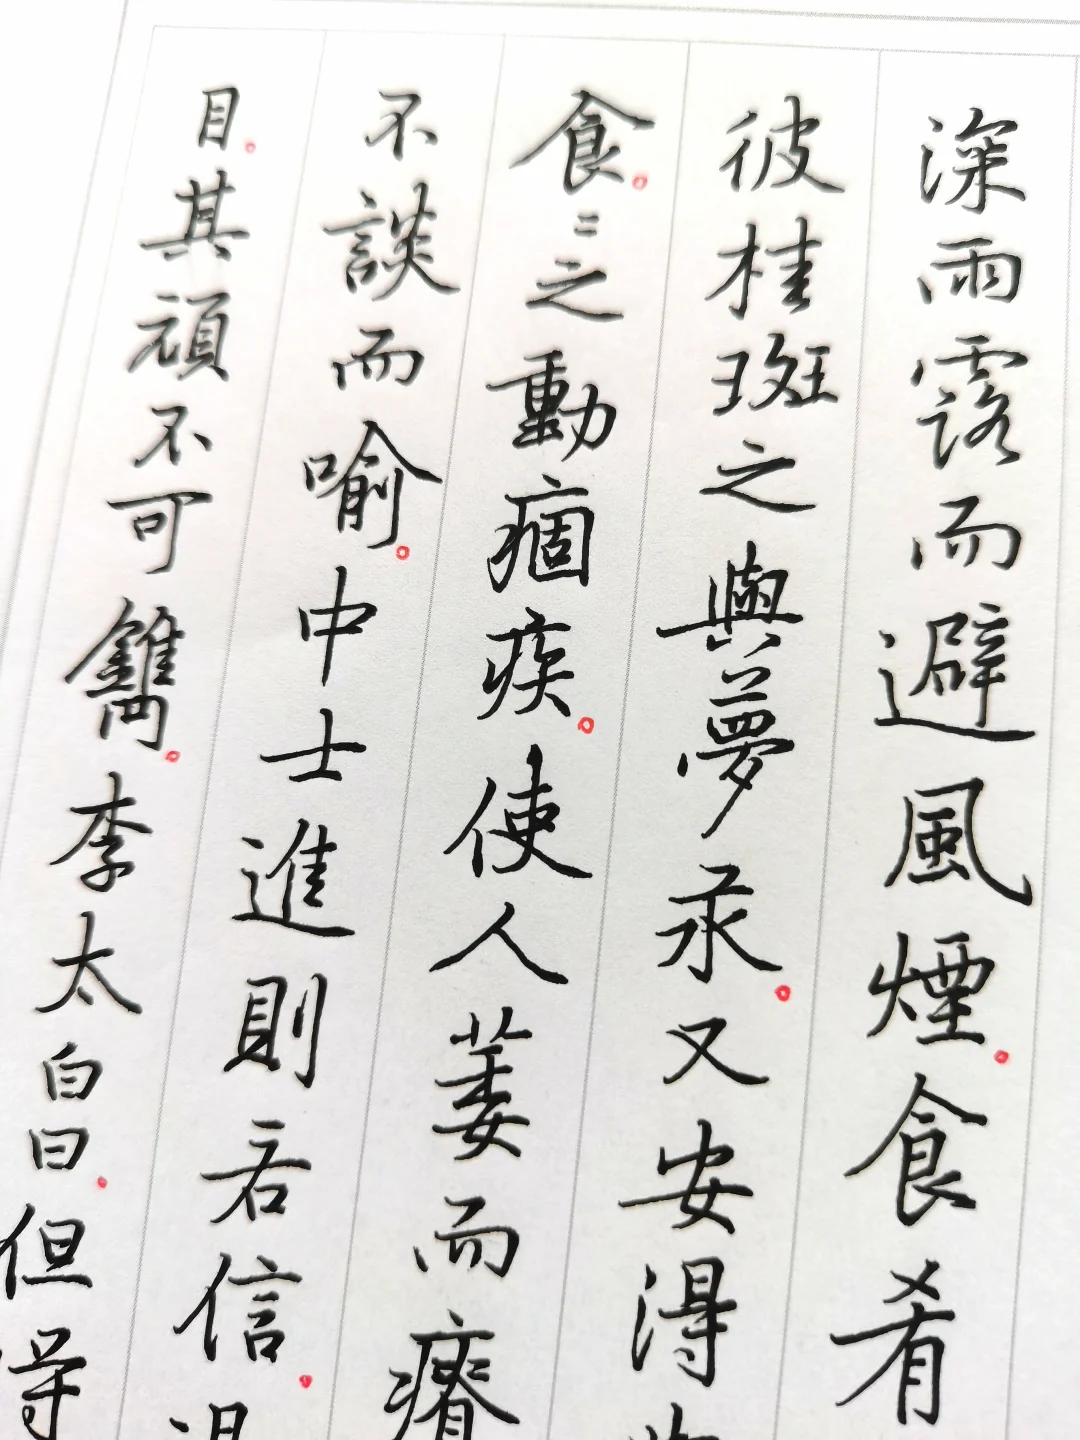 深雨露而避風煙。食肴
彼桂斑之與夢汞。又安得
食。〻之動痼疾。使人萎而瘠
不談而喻。中士進則若信。
目。其頑不可鐫。李太白曰。但得